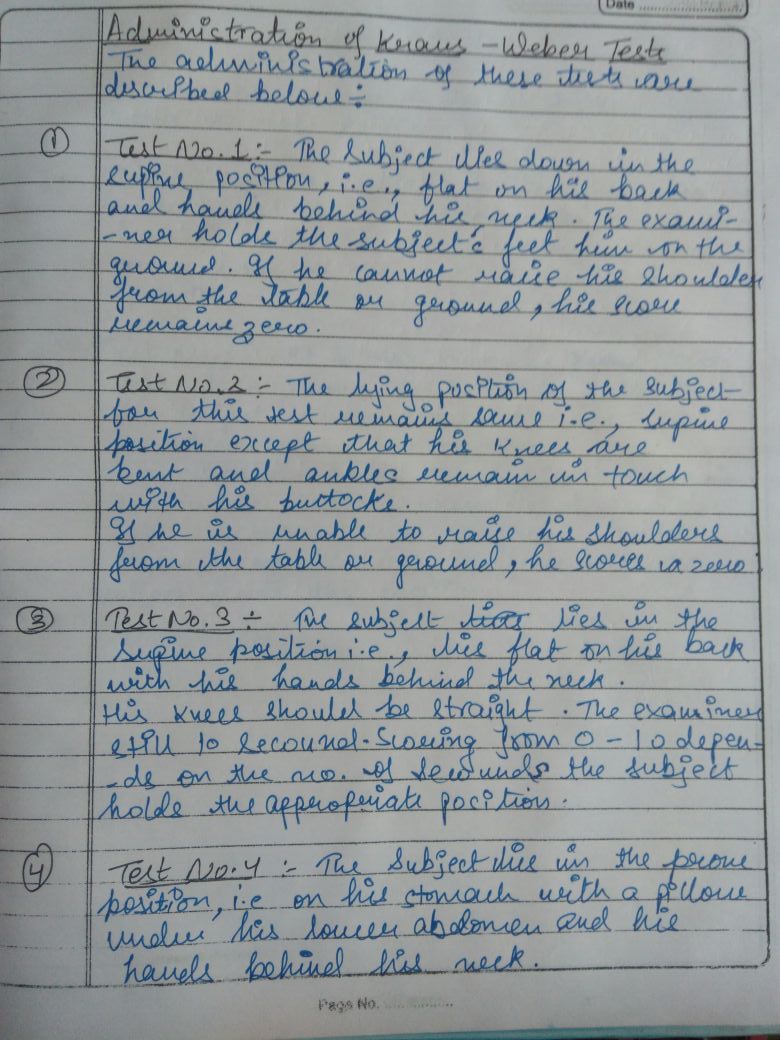 Date
Administration of Kraus - Weber Tests
The administration of these tests are
described below :-
① Test No. 1 :- The Subject lies down in the
supine position, i.e., flat on his back
and hands behind his neck. The exami-
-ner holds the subject's feet him on the
ground. If he cannot raise his shoulder
from the table or ground, his score
remains zero.
② Test No. 2 :- The lying position of the subject
for this test remains same i.e., supine
position except that his knees are
bent and ankles remain in touch
with his buttocks.
If he is unable to raise his shoulders
from the table or ground, he scores a zero
③ Test No. 3 :- The subject lies in the
supine position i.e., lies flat on his back
with his hands behind the neck.
His knees should be straight. The examiner
still 10 secound. Scoring from 0 - 10 depen-
-ds on the no. of seconds the subject
holds the appropriate position.
④ Test No. 4 :- The Subject lies in the prone
position, i.e on his stomach with a pillow
under his lower abdomen and his
hands behind his neck.
Page No.